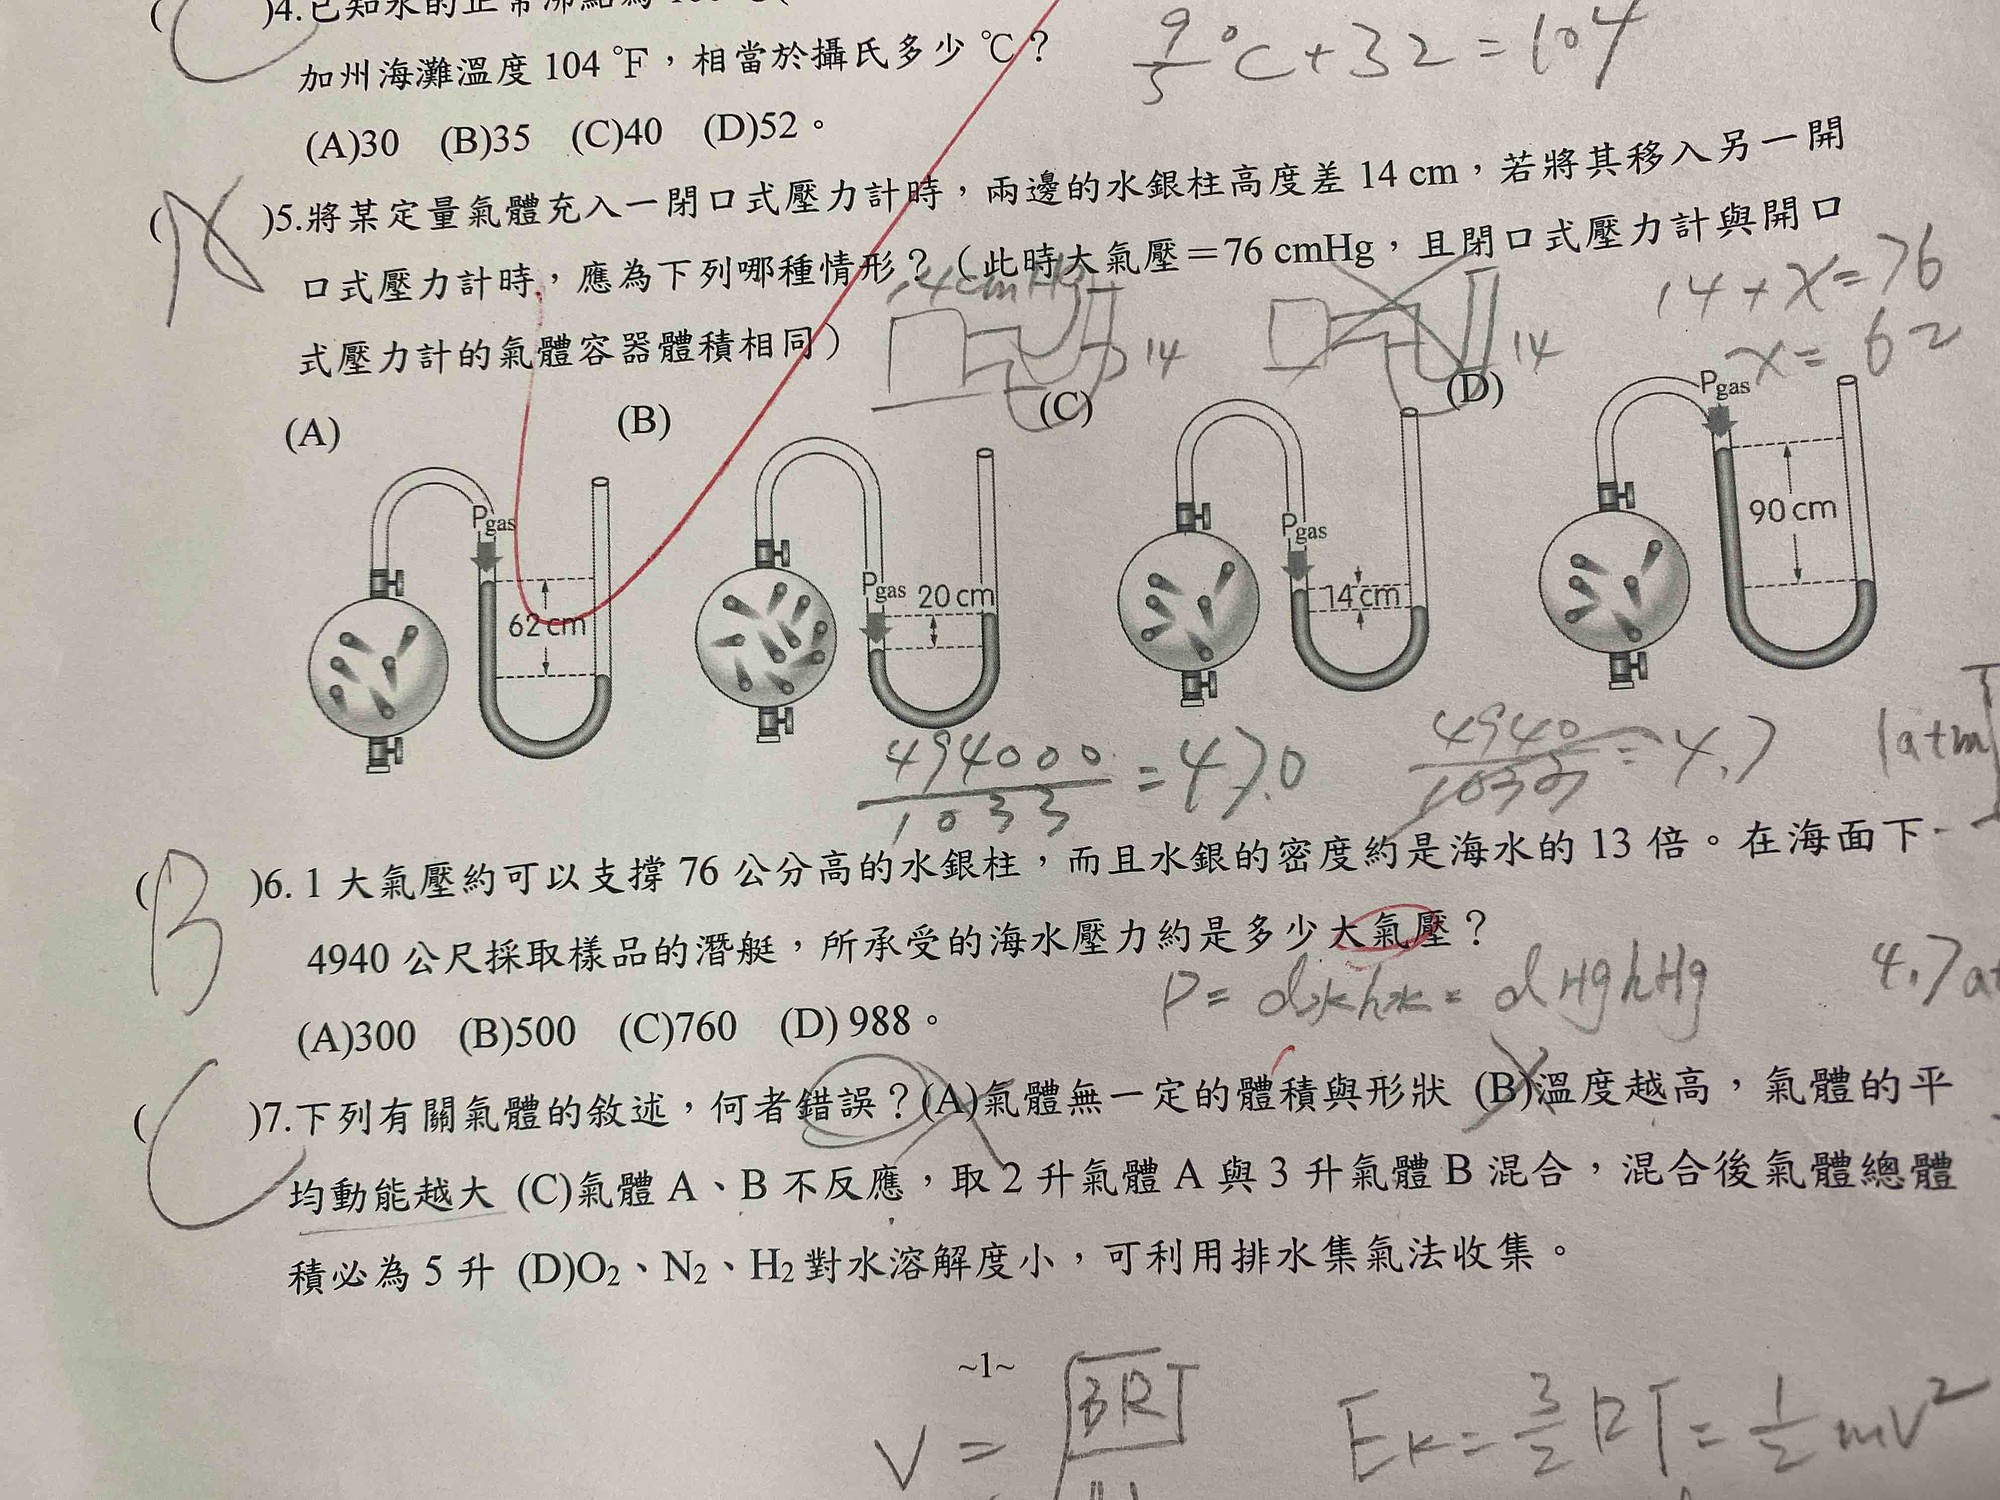 )4.已知水的正常沸點為
加州海灘溫度 104 ℉，相當於攝氏多少 ℃？
(A)30 (B)35 (C)40 (D)52。
9/5 °C + 32 = 104
( )5.將某定量氣體充入一閉口式壓力計時，兩邊的水銀柱高度差 14 cm，若將其移入另一開
口式壓力計時，應為下列哪種情形？（此時大氣壓＝76 cmHg，且閉口式壓力計與開口
式壓力計的氣體容器體積相同）
14cmHg
14
14
14 + x = 76
x = 62
(A) (B) (C) (D)
Pgas 62 cm
Pgas 20 cm
Pgas 14 cm
Pgas 90 cm
494000/1033 = 47.0
4940/1033 = 4.7
1atm
(B )6. 1 大氣壓約可以支撐 76 公分高的水銀柱，而且水銀的密度約是海水的 13 倍。在海面下
4940 公尺採取樣品的潛艇，所承受的海水壓力約是多少大氣壓？
P = d水h水 = dHghHg
4.7 at
(A)300 (B)500 (C)760 (D) 988。
(C )7.下列有關氣體的敘述，何者錯誤？(A)氣體無一定的體積與形狀 (B)溫度越高，氣體的平
均動能越大 (C)氣體 A、B 不反應，取 2 升氣體 A 與 3 升氣體 B 混合，混合後氣體總體
積必為 5 升 (D)O₂、N₂、H₂ 對水溶解度小，可利用排水集氣法收集。
~1~
V = √3RT
Ek = 3/2 RT = 1/2 mv²